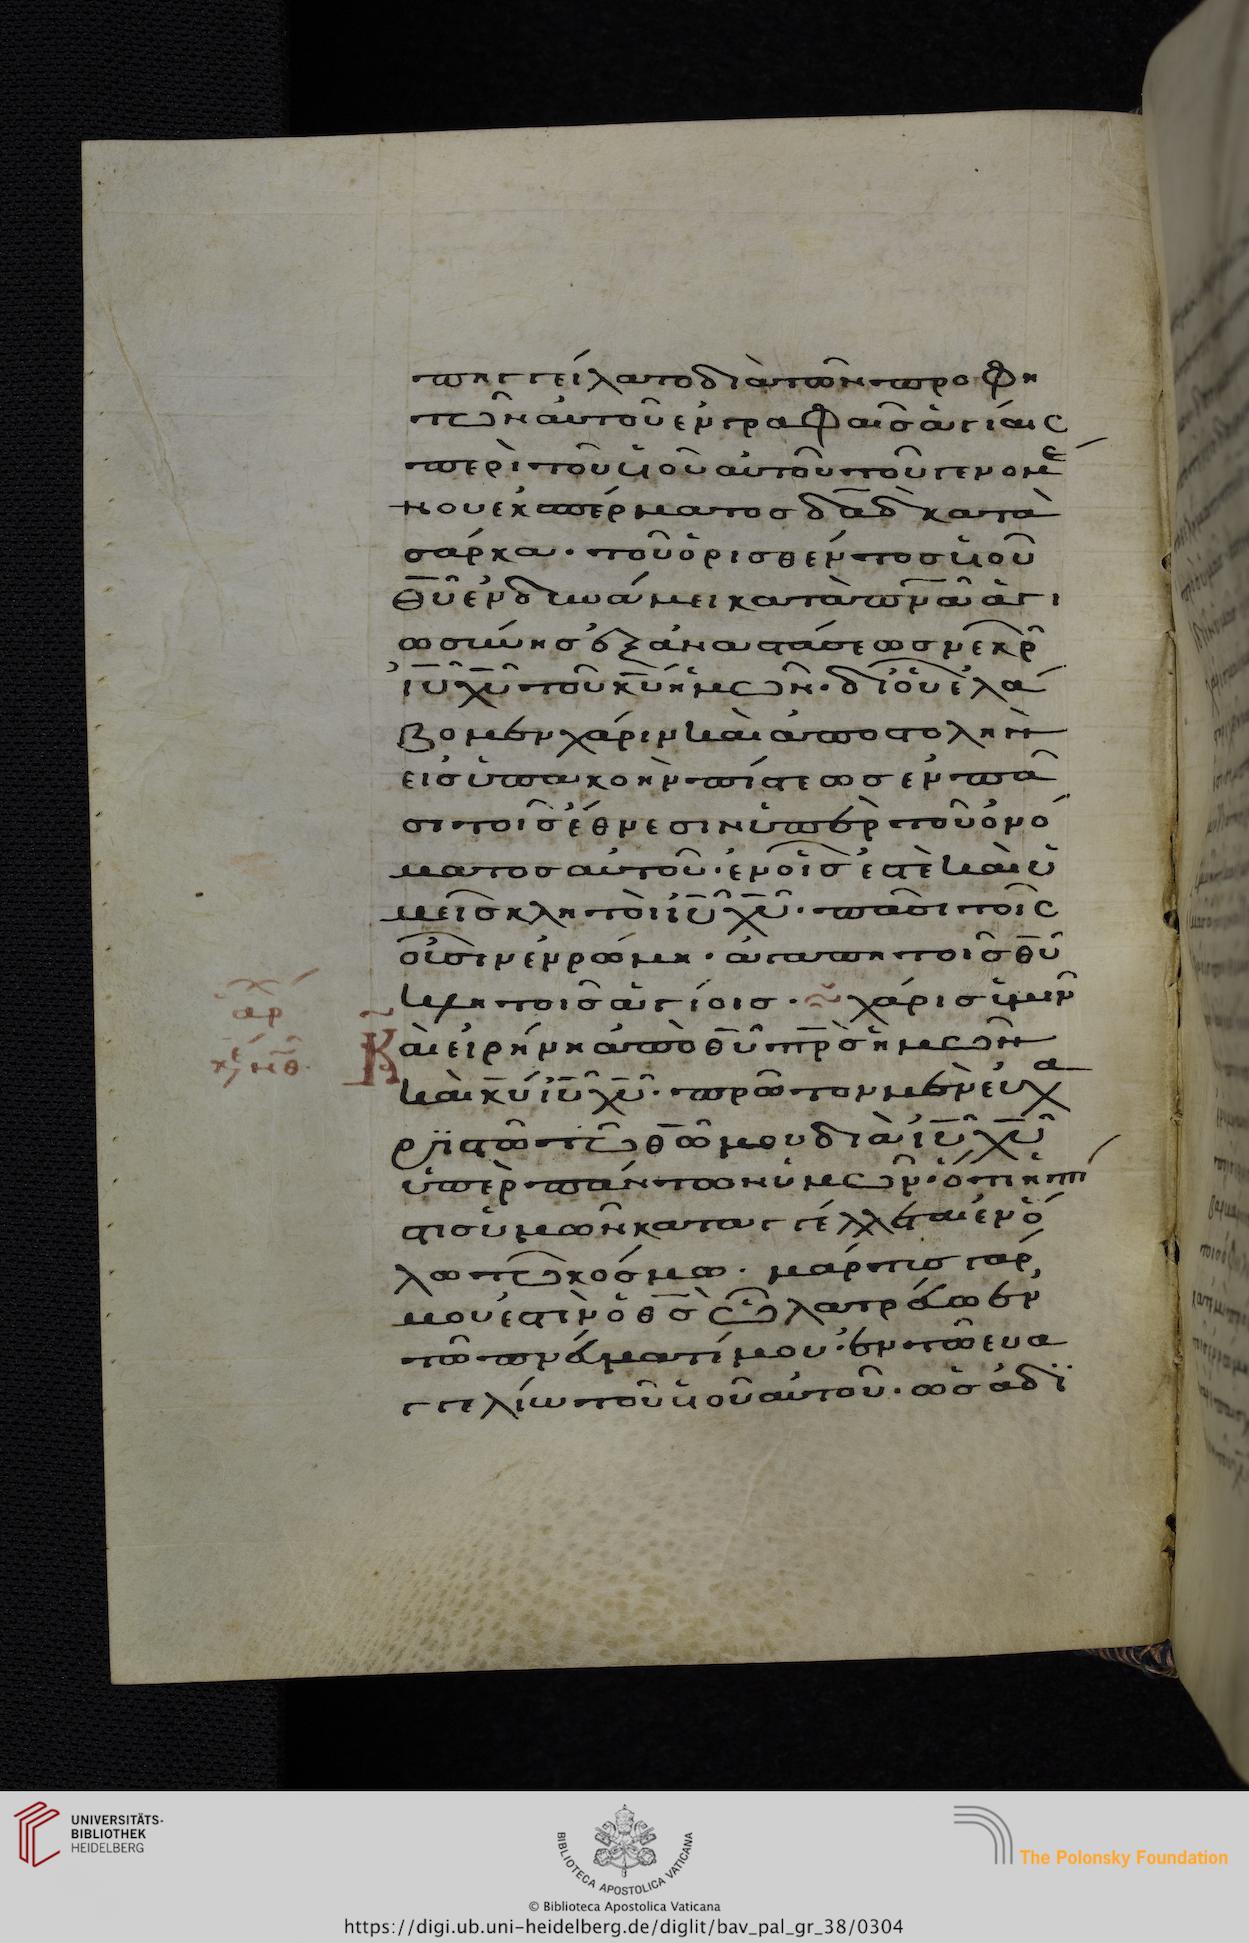 πηγγείλατο διὰ τῶν προφη
τῶν αὐτοῦ ἐν γραφαῖς ἁγίαις
περὶ τοῦ υἱοῦ αὐτοῦ τοῦ γενομέ
νου ἐκ σπέρματος δα̅δ κατὰ
σάρκα· τοῦ ὁρισθέντος υἱοῦ
θ̅υ̅ ἐν δυνάμει κατὰ π̅ν̅α̅ ἁγι
ωσύνης ἐξ ἀναστάσεως νεκρ
ι̅υ̅ χ̅υ̅ τοῦ κ̅υ̅ ἡμῶν· δι' οὗ ἐλά
βομεν χάριν καὶ ἀποστολὴν
εἰς ὑπακοὴν πίστεως ἐν πᾶ
σι τοῖς ἔθνεσιν ὑπὲρ τοῦ ὀνό
ματος αὐτοῦ· ἐν οἷς ἐστὲ καὶ ὑ
μεῖς κλητοὶ ι̅υ̅ χ̅υ̅· πᾶσι τοῖς
οὖσιν ἐν ρώμη· ἀγαπητοῖς θ̅υ̅
κλητοῖς ἁγίοις· χάρις ὑμῖν
Καὶ εἰρήνη ἀπὸ θ̅υ̅ π̅ρ̅ς ἡμῶν
καὶ κ̅υ̅ ι̅υ̅ χ̅υ̅· πρῶτον μὲν εὐχα
ριστῶ τῶ θ̅ω̅ μου διὰ ι̅υ̅ χ̅υ̅
ὑπὲρ πάντων ὑμῶν· ὅτι ἡ πί
στις ὑμῶν καταγγέλλεται ἐν ὅ
λω τῶ κόσμω· μάρτυς γάρ
μου ἐστὶν ὁ θ̅ς̅ ὧ λατρεύω ἐν
τῶ πνεύματί μου· ἐν τῶ εὐα
γγελίω τοῦ υἱοῦ αὐτοῦ· ὡς ἀδϊ
UNIVERSITÄTS-
BIBLIOTHEK
HEIDELBERG
BIBLIOTECA APOSTOLICA VATICANA
The Polonsky Foundation
© Biblioteca Apostolica Vaticana
https://digi.ub.uni-heidelberg.de/diglit/bav_pal_gr_38/0304